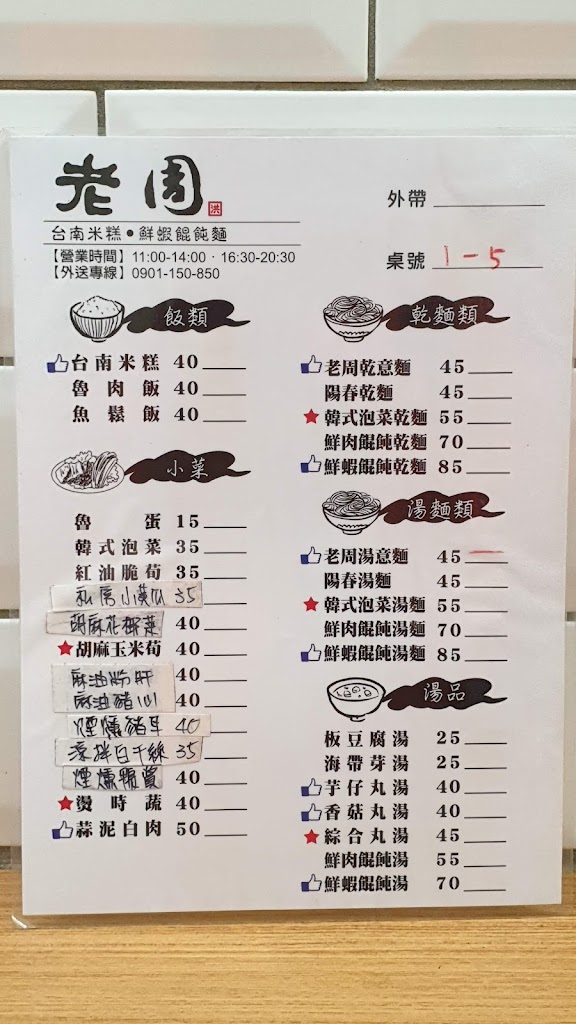 老周
洪
台南米糕•鮮蝦餛飩麵
【營業時間】11:00-14:00 · 16:30-20:30
【外送專線】0901-150-850
外帶
桌號 1-5
飯類
台南米糕 40
魯肉飯 40
魚鬆飯 40
小菜
魯蛋 15
韓式泡菜 35
紅油脆荀 35
私房小黃瓜 35
胡麻花椰菜 40
胡麻玉米荀 40
麻油粉肝 40
麻油豬心 40
煙燻豬耳 40
涼拌白干絲 35
煙燻鴨賞 40
燙時蔬 40
蒜泥白肉 50
乾麵類
老周乾意麵 45
陽春乾麵 45
韓式泡菜乾麵 55
鮮肉餛飩乾麵 70
鮮蝦餛飩乾麵 85
湯麵類
老周湯意麵 45
陽春湯麵 45
韓式泡菜湯麵 55
鮮肉餛飩湯麵 70
鮮蝦餛飩湯麵 85
湯品
板豆腐湯 25
海帶芽湯 25
芋仔丸湯 40
香菇丸湯 40
綜合丸湯 45
鮮肉餛飩湯 55
鮮蝦餛飩湯 70